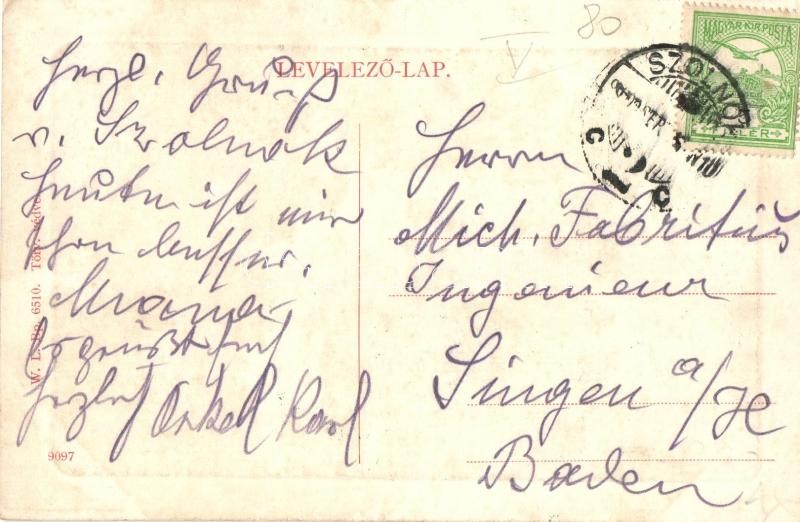 80
V
LEVELEZŐ-LAP.
MAGYAR KIR. POSTA
FILLÉR
SZOLNOK
C
Herzl. Gruß
v. Szolnok
heute ist mir
schon besser.
grüßt Euch
herzlich Onkel Karl
Herrn
Mich. Fabritius
Ingenieur
Singen a/H
Baden
W. L. Bp. 6510. Törv. védve.
9097